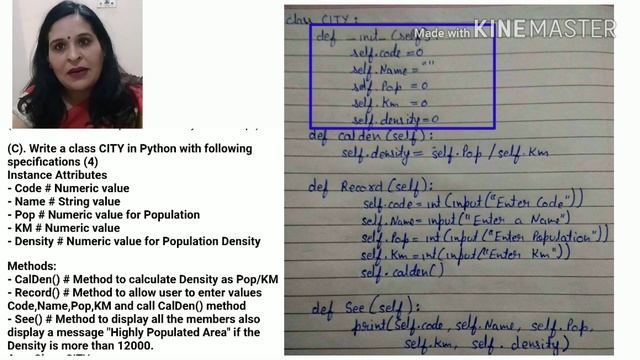 (C). Write a class CITY in Python with following
specifications (4)
Instance Attributes
- Code # Numeric value
- Name # String value
- Pop # Numeric value for Population
- KM # Numeric value
- Density # Numeric value for Population Density
Methods:
- CalDen() # Method to calculate Density as Pop/KM
- Record() # Method to allow user to enter values
Code,Name,Pop,KM and call CalDen() method
- See() # Method to display all the members also
display a message "Highly Populated Area" if the
Density is more than 12000.
Made with KINEMASTER
class CITY:
def _init_(self):
self.code = 0
self.Name = ""
self.Pop = 0
self.Km = 0
self.density = 0
def calden(self):
self.density = self.Pop / self.Km
def Record(self):
self.code = int(input("Enter Code"))
self.Name = input("Enter a Name")
self.Pop = int(input("Enter Population"))
self.Km = int(input("Enter Km"))
self.calden()
def See(self):
print(self.code, self.Name, self.Pop,
self.Km, self.density)